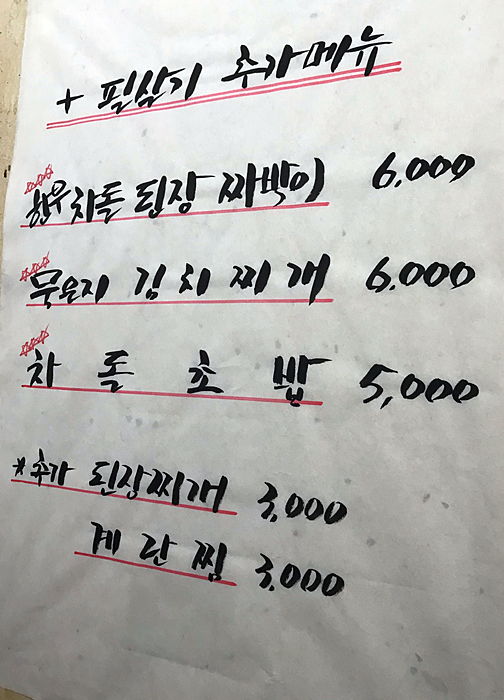 + 필살기 추가메뉴
한우차돌 된장 짜박이 6,000
묵은지 김치찌개 6,000
차돌초밥 5,000
*추가 된장찌개 3,000
계란찜 3,000